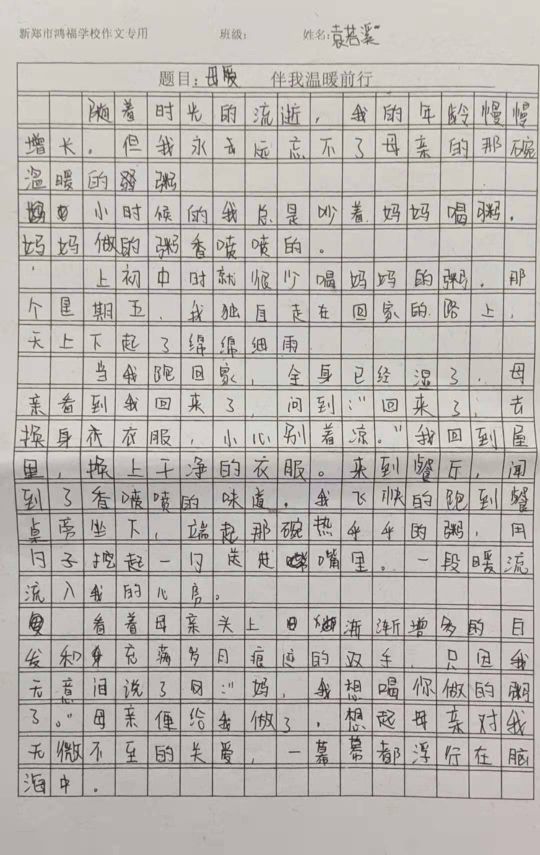 新郑市鸿福学校作文专用 班级: 姓名:袁若溪
题目:母暖 伴我温暖前行
随着时光的流逝,我的年龄慢慢
增长。但我永远忘不了母亲的那碗
温暖的粥
小时候的我总是吵着妈妈喝粥。
妈妈做的粥香喷喷的。
上初中时就很少喝妈妈的粥。那
个星期五,我独自走在回家的路上,
天上下起了绵绵细雨
当我跑回家,全身已经湿了,母
亲看到我回来了,问到:“回来了,去
换身衣衣服,小心别着凉。”我回到屋
里,换上干净的衣服。来到餐厅,闻
到了香喷喷的味道。我飞快的跑到餐
桌旁坐下,端起那碗热乎乎的粥,用
勺子挖起一勺送进嘴里。一段暖流
流入我的心房。
看着母亲头上渐渐增多的白
发和充满岁月痕迹的双手,只因我
无意间说了句:“妈,我想喝你做的粥
了。”母亲便给我做了,想起母亲对我
无微不至的关爱,一幕幕都浮行在脑
海中。